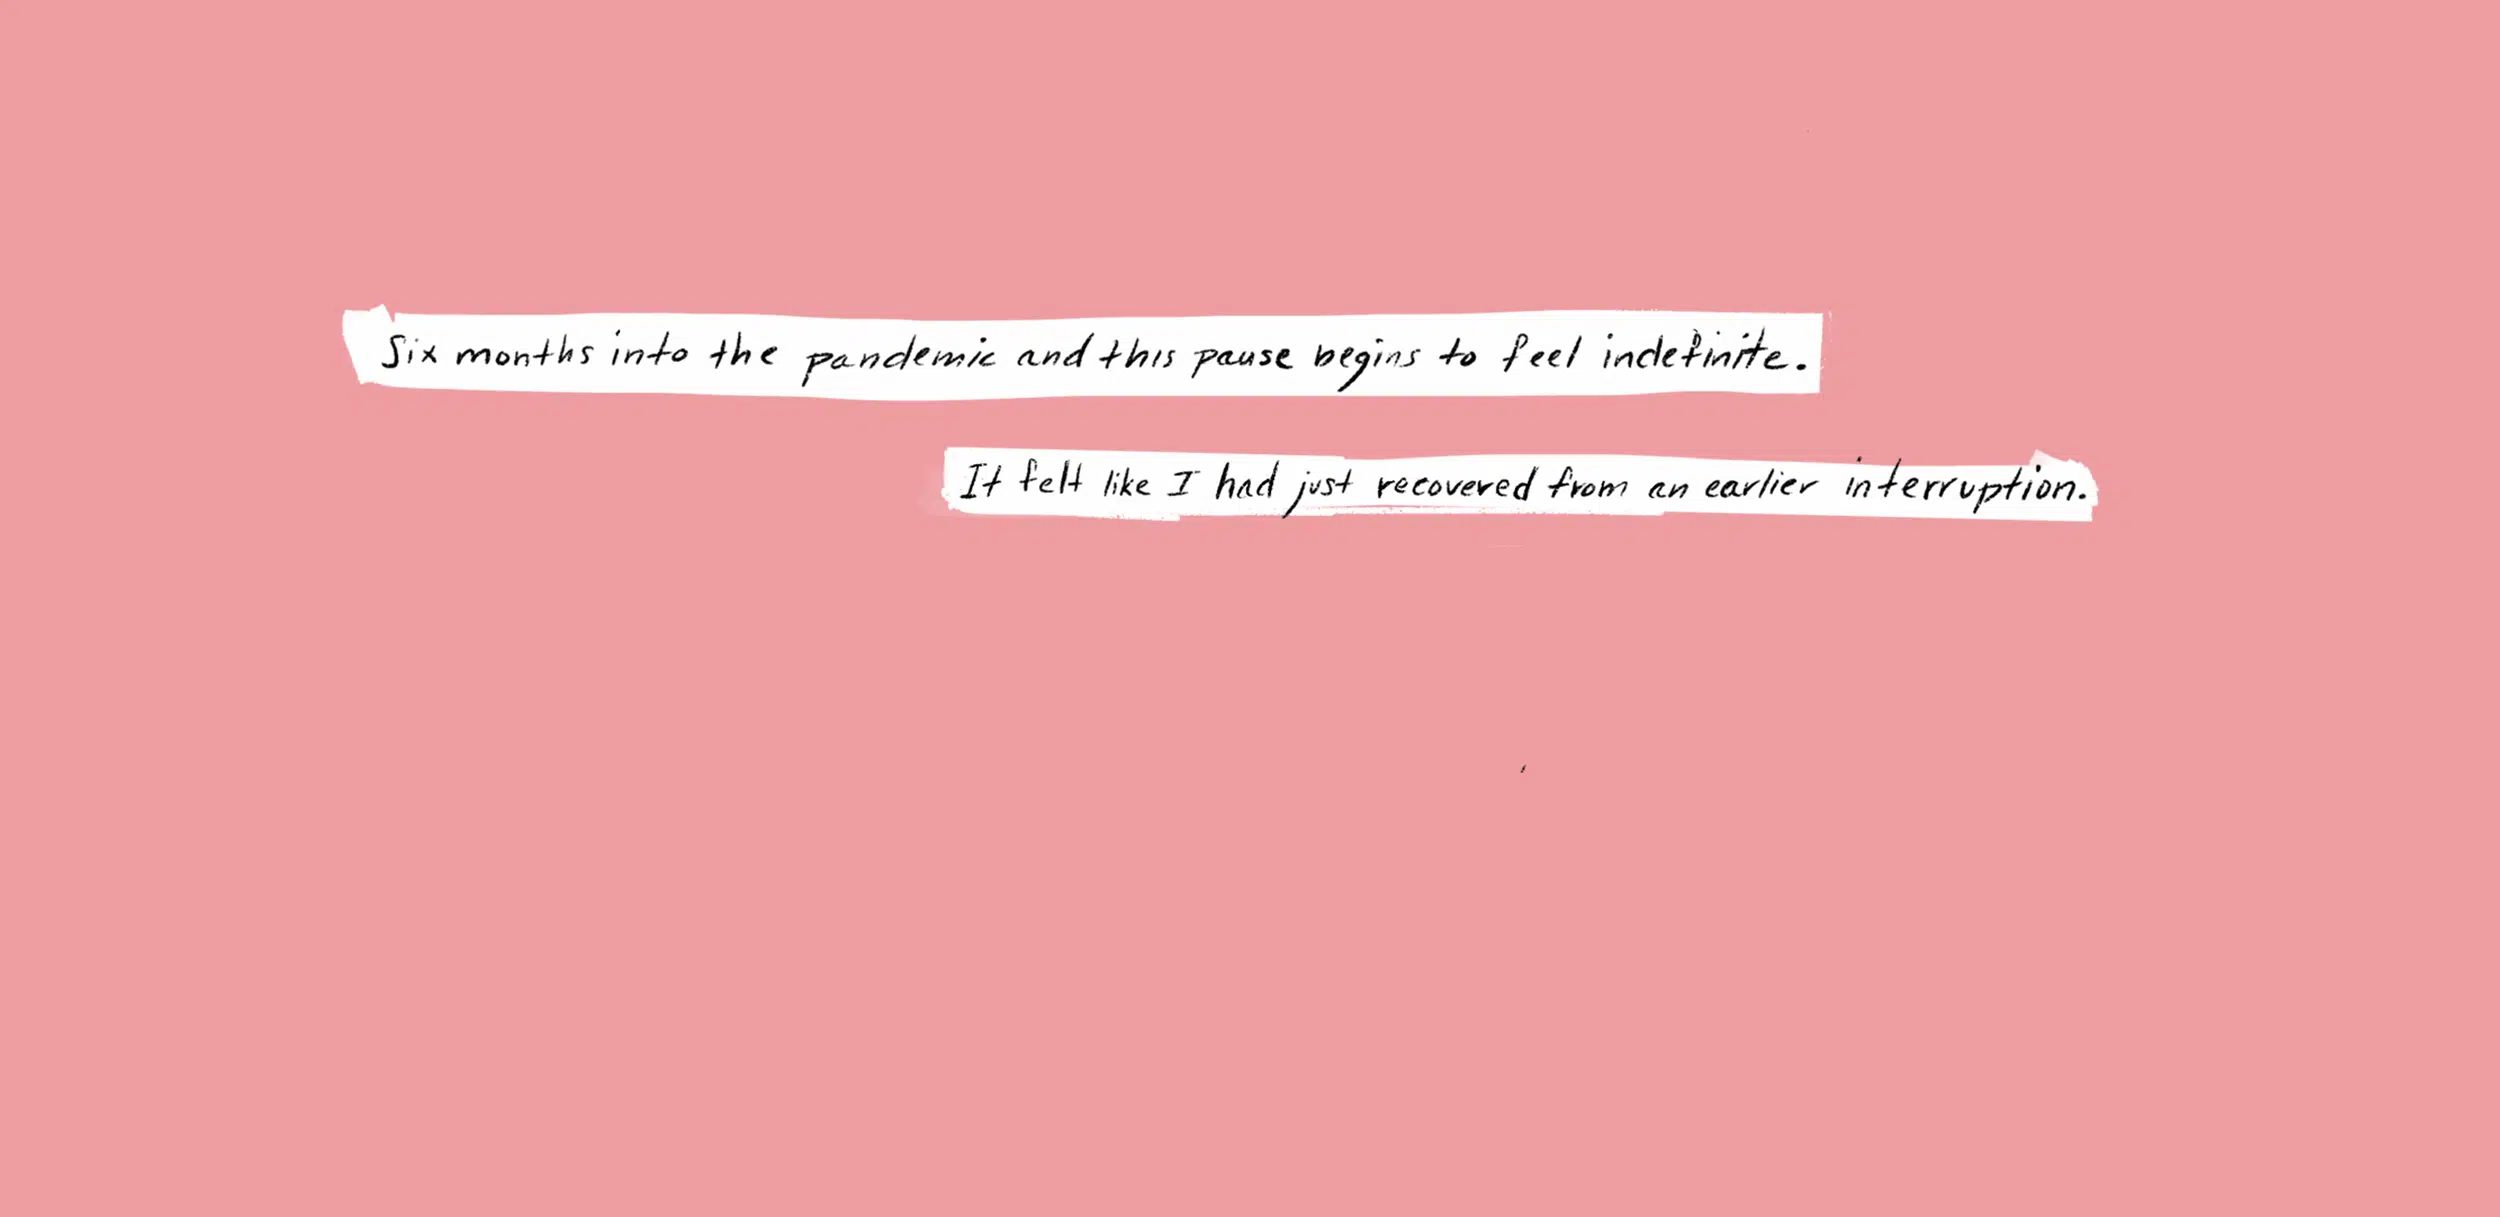 Six months into the pandemic and this pause begins to feel indefinite.
It felt like I had just recovered from an earlier interruption.